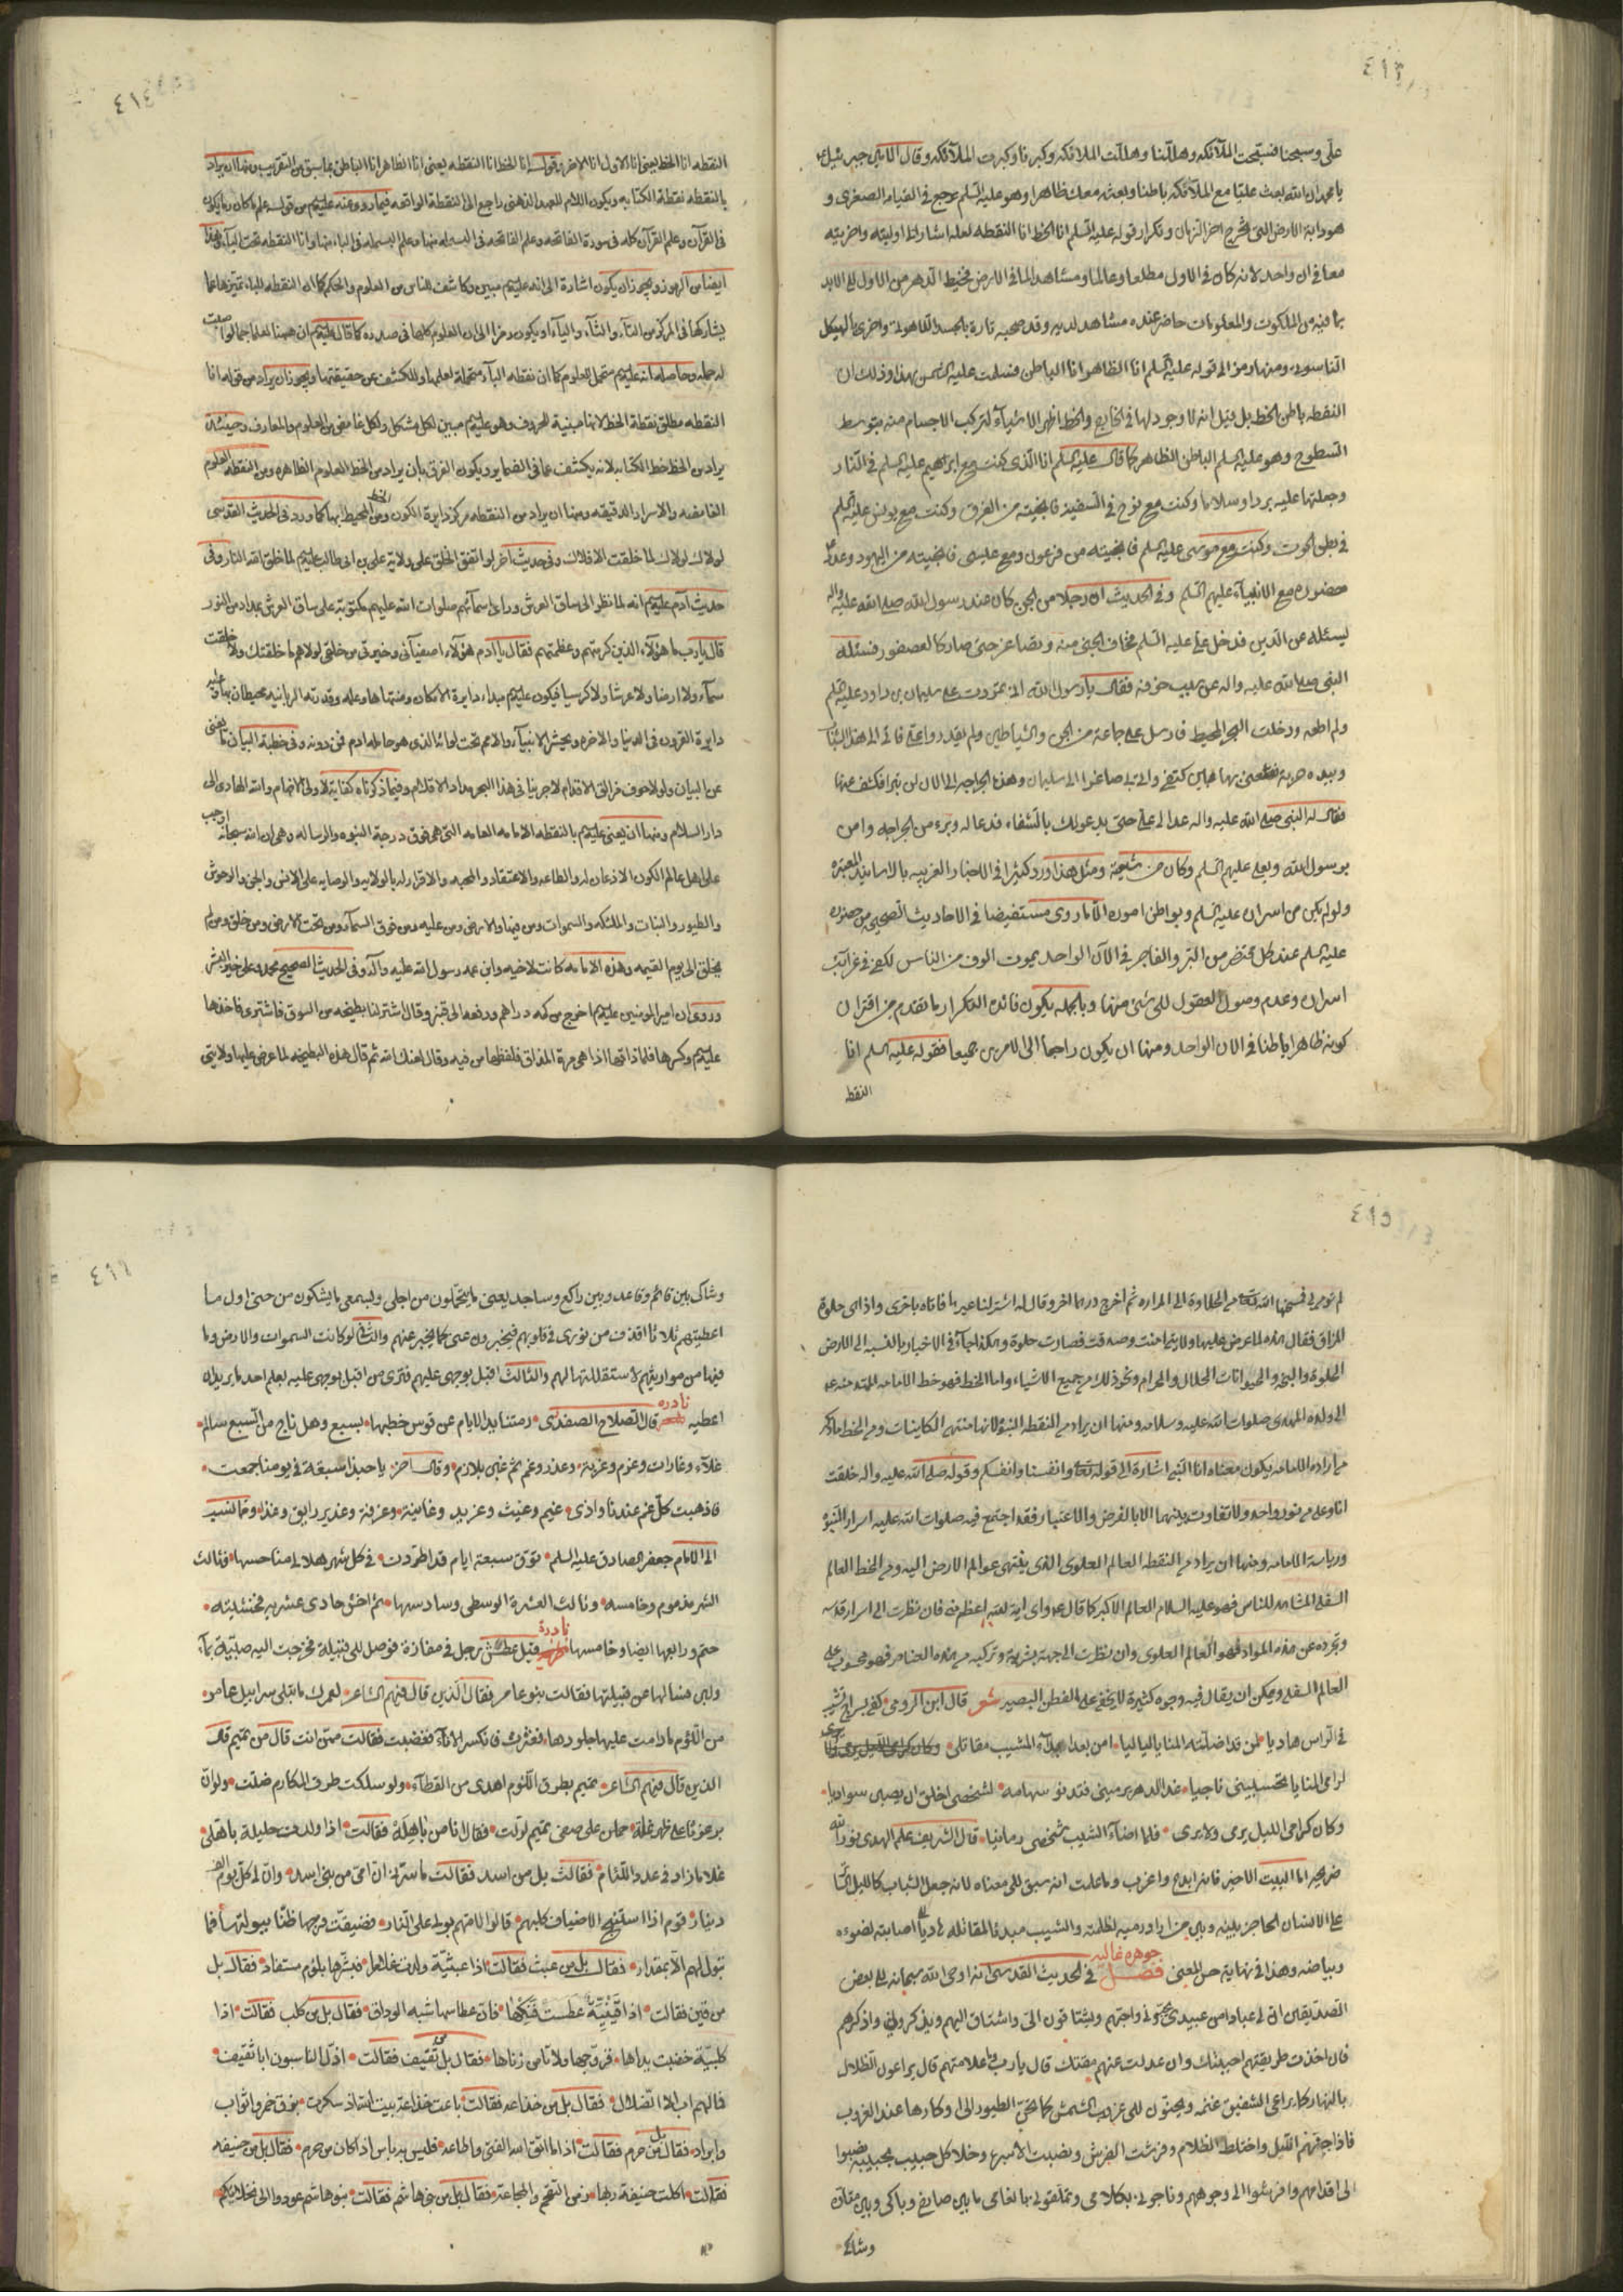 ٤١٣
علي وسبحنا فسبحت الملآئكه وهللنا وهللت الملائكه وكبرنا وكبرت الملآئكه وقال للنبي جبرئيل
يا محمد ان الله بعث عليا مع الملآئكه باطنا وبعثه معك ظاهرا وهو عليه السلم يرجع في القيامه الصغرى و
هو دابة الارض التى تخرج اخر الزمان وتكرار قوله عليه السلم انا الخط انا النقطه لعله اشارة الى اوليته واخريته
معا في ان واحد لانه كان في الاول مطلعا وعالما ومشاهدا لما في الارض محيط الدهر من الاول الى الابد
بما فيه من الملكوت والمعلومات حاضر عنده مشاهد لديه وقد صحبه تارة بالجسد اللاهوتي واخرى بالهيكل
الناسوتى ومنها رمز الى قوله عليه السلم انا الظاهر انا الباطن وذلك ان
النقطه باطن الخط بل قيل انه لا وجود لها في الخارج والخط اظهر الاشياء لتركب الاجسام منه بتوسط
السطوح وهو عليه السلم الباطن الظاهر كما قال عليه السلم انا الذى كنت مع ابراهيم عليه السلم في النار
وجعلتها عليه بردا وسلاما وكنت مع نوح في السفينه فانجيته من الغرق وكنت مع يونس عليه السلم
في بطن الحوت وكنت مع موسى عليه السلم فانجيته من فرعون ومع عيسى فانجيته من اليهود
حضوره مع الانبيآء عليهم السلم وفي الحديث ان رجلا من الجن كان عند رسول الله صلى الله عليه واله
ليسئله عن الدين فدخل علي عليه السلم فخاف الجنى منه وتصاغر حتى صار كالعصفور فسئله
النبى صلى الله عليه واله عن سبب خوفه فقال يا رسول الله انى تمردت على سليمان بن داود عليه السلم
ولم اطعه ودخلت البحر المحيط فارسل على جماعة من الجن والشياطين ولم يقدروا على فاتى الى هذا الشاب
وبيده حربة فضربنى بها بين كتفى والى صاغرا الى سليمان وهذه الجراحه الى الان لن تبرا فكشف عنها
فقال له النبي صلى الله عليه واله عد الى علي حتى يدعو لك بالشفاء فدعا له وبرء من الجراحه وامن
برسول الله وبعلي عليهم السلم وكان من شيعته ومثل هذا ورد كثيرا في الاخبار الغريبه بالاسانيد المعتبره
ولو لم يكن من اسراره عليه السلم وبواطن اموره الا ما روى مستفيضا في الاحاديث الصحيحه من حضوره
عليه السلم عند كل محتضر من البر والفاجر في الآن الواحد يموت الوف من الناس لكفى في غرائب
اسراره وعدم وصول العقول الى شئ منها وبالجمله يكون فائدة التكرار ما تقدم من اقتران
كونه ظاهرا باطنا في الان الواحد ومنها ان يكون راجعا الى الامرين جميعا فقوله عليه السلم انا
النقطه
٤١٤
النقطه انا الخط يعنى انا الاول انا الاخر وقوله انا الخط انا النقطه يعنى انا الظاهر انا الباطن بما سبق من التقريب ومنها ان يراد
بالنقطه نقطة الكتابه ويكون اللام للعهد الذهنى راجع الى النقطة الواقعه فيما روى عنه عليه السلم من قوله علم ما كان وما يكون
في القرآن وعلم القرآن كله في سورة الفاتحه وعلم الفاتحه في البسمله منها وعلم البسمله في الباء منها وانا النقطه تحت البآء وهذا
ايضا من الرموز ويجوز ان يكون اشارة الى انه عليه السلم مبين وكاشف للناس من العلوم والحكم كما ان النقطه للباء تميزها عما
يشاركها في المركز من التآء والثآء والياء او يكون رمزا الى ان العلوم كلها في صدره كما قال عليه السلم ان ههنا لعلما جما لو اصبت
له حمله وحاصله انه عليه السلم متحمل للعلوم كما ان نقطه البآء متحملة لعلمها وللكشف عن حقيقتها ويجوز ان يراد من قوله انا
النقطه مطلق نقطة الخط لانها مبينة للحروف وهو عليه السلم مبين لكل مشكل ولكل غامض من العلوم والمعارف وحينئذ
يراد من الخط خط الكتابه لانه يكشف عما في الضماير ويكون الفرق بان يراد من الخط العلوم الظاهره ومن النقطه العلوم
الغامضه والاسرار الدقيقه ومنها ان يراد من النقطه مركز دايرة الكون ومن الخط المحيط بها كما ورد في الحديث القدسى
لولاك لولاك لما خلقت الافلاك وفي حديث اخر لو اتفق الخلق على ولاية علي بن ابى طالب عليه السلم لما خلق الله النار وفى
حديث آدم عليه السلم انه لما نظر الى ساق العرش وراى اسمآئهم صلوات الله عليهم مكتوبة على ساق العرش بمداد من النور
قال يا رب ما هؤلآء الذين كرمتهم وعظمتهم فقال يا آدم هؤلآء اصفيآئى وخيرتى من خلقى لولاهم ما خلقتك ولا خلقت
سمآء ولا ارضا ولا عرشا ولا كرسيا فيكون عليه السلم مبداء دايرة الامكان ومنتهاها وعلمه وقدرته الربانيه محيطان بها وعليه
دايرة القرون في الدنيا والاخره ويحشر الانبيآء والامم تحت لوائه الذى هو حامله ادم فمن دونه وفى خطبة البيان ما يغنى
عن البيان ولولا خوف مزالق الاقدام لاجرينا في هذا البحر مداد الاقلام وفيما ذكرناه كفاية لاولى الافهام والله الهادى الى
دار السلام ومنها ان يعنى عليه السلم بالنقطه الامامه العامه التى هي فوق درجة النبوه والرساله وهي ان الله سبحانه اوجب
على اهل عالم الكون الاذعان له والطاعه والاعتقاد والمحبه والاقرار له بالولايه والوصايه على الانس والجن والوحوش
والطيور والنبات والملئكه والسموات ومن فيها والارض ومن عليه ومن فوق السمآء ومن تحت الارض ومن خلق ومن لم
يخلق الى يوم القيمه وهذه الامامه كانت لاخيه وابن عمه رسول الله عليه وآله وفى الحديث الصحيح محمد وعلي خير البشر
وروى ان امير المؤمنين عليه السلم اخرج من كمه دراهم ودفعه الى قنبر وقال اشتر لنا بطيخه من السوق فاشترى فاخذها
عليه السلم وكسرها فلما ذاقها اذا هى مرة المذاق فلفظها من فيه وقال لعنك الله ثم قال هذه البطيخه لما عرض عليها ولايتى
٤١٥
لم تؤمن لى فمسخها الله تعا من الحلاوة الى المراره ثم اخرج درهما اخر وقال له اشتر لنا غيرها فاتاه باخرى واذا هى حلوة
المذاق فقال هذه لما عرض عليها ولايتى امنت وصدقت فصارت حلوة وهكذا جآء في الاخبار بالنسبه الى الارض
الحلوة والسبخه والحيوانات الحلال والحرام ونحو ذلك من جميع الاشياء واما الخط فهو خط الامامه الممتد منه
الى ولده المهدى صلوات الله عليه وسلامه ومنها ان يراد من النقطه النبوه لانها منتهى الكاينات ومن الخط ما ذكر
من ارادة الامامه فيكون معناه انا النبي اشارة الى قوله تعا وانفسنا وانفسكم وقوله صلى الله عليه واله خلقت
انا وعلي من نور واحد ولا تفاوت بينهما الا بالفرض والاعتبار فقد اجتمع فيه صلوات الله عليه اسرار النبوه
ورياسة الامامه ومنها ان يراد من النقطه العالم العلوى الذى ينتهى عوالم الارض اليه ومن الخط العالم
السفلى المشاهد للناس فهو عليه السلام العالم الاكبر كما قال واى اية لله اعظم منه فان نظرت الى اسرار قدسه
وتجرده عن هذه المواد فهو العالم العلوى وان نظرت الى جهة بشريته وتركبه من هذه العناصر فهو محسوب على
العالم السفلى ويمكن ان يقال فيه وجوه كثيرة لا يخفى على الفطن البصير شعر قال ابن الرومى كفى بسراج الشيب
في الراس هاديا لمن قد اضلته المنايا لياليا امن بعد ابدآء المشيب مقاتلى
لرامى المنايا تحسبينى ناجيا غدا الدهر يرمينى فتدنو سهامه لشخصى اخلق ان يصبن سواديا
وكان كرامى الليل يرمى ولا يرى فلما اضآء الشيب شخصى رمانيا قال الشريف علم الهدى نور الله
ضريحه اما البيت الاخير فانه ابدع واغرب وما علمت انه سبق الى معناه لانه جعل الشباب كالليل الساتر
على الانسان الحاجز بينه وبين من اراد رميه لظلمته والشيب مبديا لمقاتله هاديا الى اصابته لضوءه
وبياضه وهذا في نهاية حسن المعنى فصل جوهره غاليه في الحديث القدسى انه اوحى الله سبحانه الى بعض
الصديقين ان لى عبادا من عبيدى يحبونى واحبهم ويشتاقون الى واشتاق اليهم ويذكرونى واذكرهم
فان اخذت طريقتهم احببتك وان عدلت عنهم مقتك قال يا رب وما علامتهم قال يراعون الظلال
بالنهار كما يراعى الشفيق غنمه ويحنون الى غروب الشمس كما تحن الطيور الى اوكارها عند الغروب
فاذا جنهم الليل واختلط الظلام وفرشت الفرش ونصبت الاسره وخلا كل حبيب بحبيبه نصبوا
الى اقدامهم وافترشوا الى وجوههم وناجونى بكلامى وتملقونى بانعامى ما بين صارخ وباكى وبين متاوه
وشاكى
٤١٦
وشاك بين قائم وقاعد وبين راكع وساجد بعينى ما يتحملون من اجلى وبسمعى ما يشكون من حبى اول ما
اعطيتهم ثلاثا اقذف من نورى في قلوبهم فيخبرون عنى كما يخبر عنهم والثانى لو كانت السموات والارض وما
فيها من مواريثهم لاستقللتها لهم والثالث اقبل بوجهى عليهم فترى من اقبل بوجهى عليه يعلم احد ما يريد ان
اعطيه نادره قال الصلاح الصفدى رمتنا يد الايام عن قوس خطبها بسبع وهل ناج من السبع سالم
غلآء وغارات وغزو وغربة وغدر وغم ثم غبن ملازم وقال اخر يا حبذا سبعة في يومنا جمعت
فاذهبت كل غم عندنا واذى غيم وغيث وغريد وغانية وغرفة وغدير رايق وغذا ومما نسب
الى الامام جعفر الصادق عليه السلم توق سبعة ايام قد اطردت في كل شهر هلالى منا حسها فثالث
الشهر مذموم وخامسه وثالث العشرة الوسطى وسادسها ثم اخش حادى عشريه فخشيته
حتم ورابعها ايضا وخامسها نادرة قيل عطش رجل في مفازة فوصل الى قبيلة فخرجت اليه صبية بمآء
ولبن فسالها عن قبيلتها فقالت بنو عامر فقال الذين قال فيهم الشاعر لعمرك ما تبلى سرابيل عامر
من اللؤم ما دامت عليها جلودها فعثرت فانكسر الانآء فغضبت فقالت ممن انت قال من تميم قالت
الذين قال فيهم الشاعر تميم بطرق اللؤم اهدى من القطآء ولو سلكت طرق المكارم ضلت ولو ان
برغوثا على ظهر نملة حمل على صفى تميم لولت فقال انا من باهلة فقالت اذا ولدت حليلة باهلى
غلاما زاد في عدد اللئام فقالت بل من اسد فقالت ما سرنى ان امى من بنى اسد وان لى كل يوم الف
دينار قوم اذا استنبح الاضياف كلبهم قالوا لامهم بولى على النار فضيقت فرجها ظنا ببولتها فما
تبول لهم الا بمقدار فقال بل من عبس فقالت اذا عبسية ولدت غلاما فبشرها بلؤم مستفاد فقال بل
من قين فقالت اذا قينية عطست فنكها فان عطاسها شبه الوداق فقال بل من كلب فقالت اذا
كلبية خضبت يداها فزوجها ولا تامن زناها فقال بل من ثقيف فقالت اذل الناسبون ابا ثقيف
فما لهم اب الا الضلال فقال بل من خذاعه فقالت باعت خذاعة بيت الله اذ سكرت بزق خمر واثواب
وابراد فقال بل من جرم فقالت اذا ما اتقى الله الفتى واطاعه فليس به باس اذا كان من جرم فقال بل من حنيفه
فقالت اكلت حنيفة ربها زمن التقحم والمجاعة فقال بل من بنى هاشم فقالت بنو هاشم عودوا الى نخلاتكم